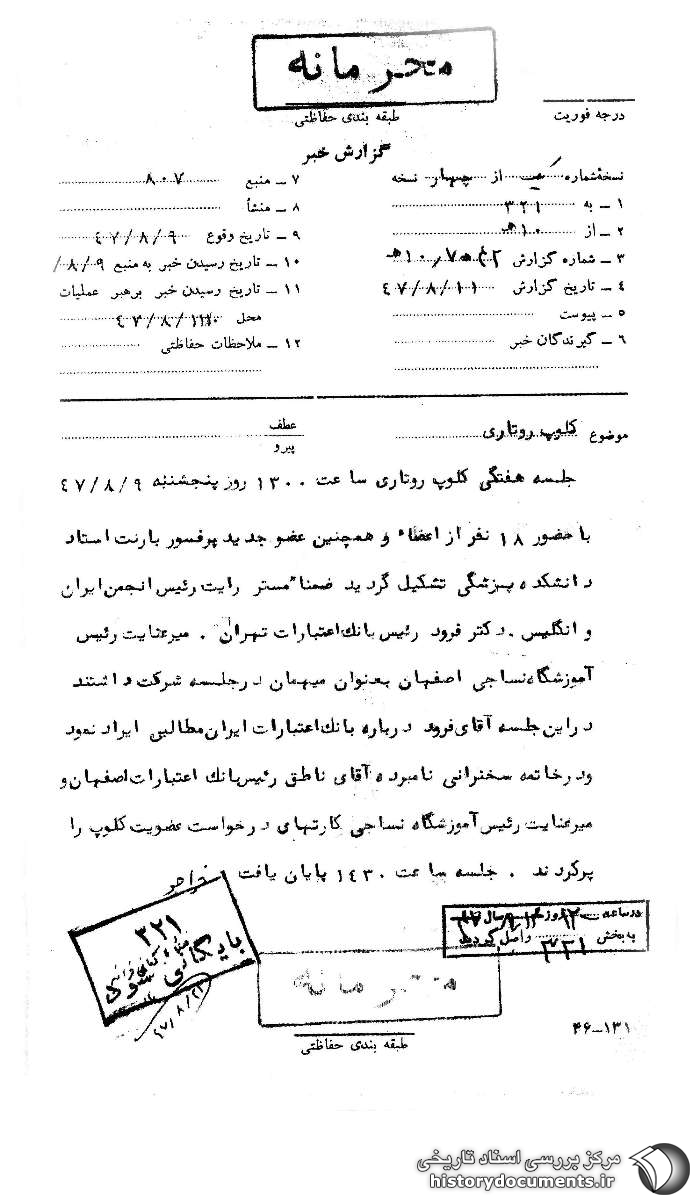 محرمانه
درجه فوریت
طبقه بندی حفاظتی
گزارش خبر
نسخهٔ شماره یک از چهار نسخه
۱ – به ۳۲۱
۲ – از ۱۰هـ
۳ – شماره گزارش
۴ – تاریخ گزارش ۴۷/۸/۱۱
۵ – پیوست
۶ – گیرندگان خبر
۷ – منبع ۸۰۷
۸ – منشأ
۹ – تاریخ وقوع ۴۷/۸/۹
۱۰ – تاریخ رسیدن خبر به منبع /۸/۹
۱۱ – تاریخ رسیدن خبر برهبر عملیات
محل ۴۷/۸/
۱۲ – ملاحظات حفاظتی
موضوع کلوپ روتاری
عطف
پیرو
جلسه هفتگی کلوپ روتاری ساعت ۱۳۰۰ روز پنجشنبه ۴۷/۸/۹
با حضور ۱۸ نفر از اعضاء و همچنین عضو جدید پرفسور بارنت استاد
دانشکده پزشگی تشکیل گردید ضمنا" مستر رایت رئیس انجمن ایران
و انگلیس . دکتر فرود رئیس بانک اعتبارات تهران . میرعنایت رئیس
آموزشگاه نساجی اصفهان بعنوان میهمان در جلسه شرکت داشتند
در این جلسه آقای فرود درباره بانک اعتبارات ایران مطالبی ایراد نمود
و در خاتمه سخنرانی نامبرده آقای ناطق رئیس بانک اعتبارات اصفهان و
میرعنایت رئیس آموزشگاه نساجی کارتهای درخواست عضویت کلوپ را
پر کردند . جلسه ساعت ۱۴۳۰ پایان یافت
در ساعت روز سال
به بخش ۳۲۱ واصل گردید
۳۲۱
بایگانی شود
۴۷/۸/
محرمانه
طبقه بندی حفاظتی
۴۶-۱۳۱
مرکز بررسی اسناد تاریخی
historydocuments.ir